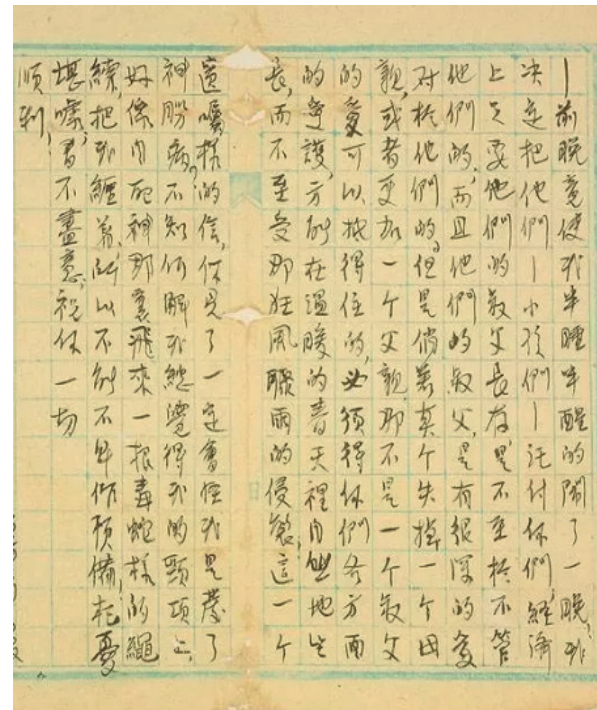 —前晚竟使我半睡半醒的鬧了一晚,我
决定把他們—小孩們—託付你們,經濟
上只要他們的叔父長存,是不至於不管
他們的,而且他們的叔父,是有很深的愛
对於他們的。但是倘若真个失掉一个母
親,或者更加一个父親,那不是一个叔父
的愛可以抵得住的,必須得你們各方面
的愛護,方能在溫暖的春天裡自然地生
長,而不至受那狂風驟雨的侵襲,這一个
遺囑樣的信,你見了一定會怪我是發了
神經病,不知何解我總覺得我的頸項上,
好像自死神那裏飛來一根毒蛇樣的繩
索,把我纏着,所以不能不早作預備!杞憂
堪嚎,書不盡意,祝你一切
順利!